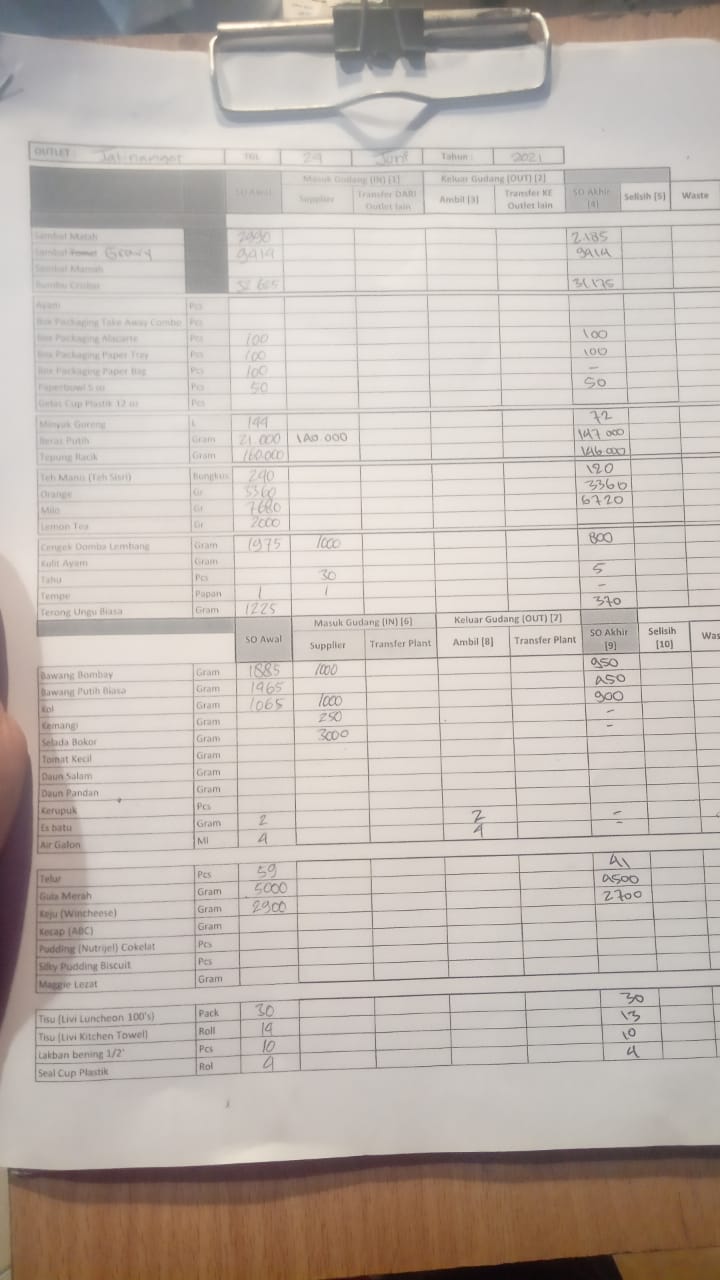 OUTLET : Jatinangor TGL 29 Juni Tahun : 2021
SO Awal Masuk Gudang (IN) [1] Keluar Gudang (OUT) [2] SO Akhir [4] Selisih [5] Waste
Supplier Transfer DARI Outlet lain Ambil [3] Transfer KE Outlet lain
Sambal Matah 2990 2.185
Sambal Gravy 9919 9919
Sambal Mamah
Bumbu 31.175
Ayam Pcs
Box Packaging Take Away Combo Pcs
Box Packaging Alacarte Pcs 100 100
Box Packaging Paper Tray Pcs 100 100
Box Packaging Paper Bag Pcs 100 -
Paperbowl 5 oz Pcs 50 50
Gelas Cup Plastik 12 oz Pcs
Minyak Goreng L 144 72
Beras Putih Gram 21.000 140.000 147.000
Tepung Racik Gram 160.000 146.000
Teh Manis (Teh Sisri) Bungkus 240 120
Orange Gr 3360 3360
Milo Gr 7680 6720
Lemon Tea Gr 2000
Cengek Domba Lembang Gram 1975 1000 800
Kulit Ayam Gram
Tahu Pcs 30 5
Tempe Papan 1 1 -
Terong Ungu Biasa Gram 1225 370
SO Awal Masuk Gudang (IN) [6] Keluar Gudang (OUT) [7] SO Akhir [9] Selisih [10] Was
Supplier Transfer Plant Ambil [8] Transfer Plant
Bawang Bombay Gram 1885 1000 950
Bawang Putih Biasa Gram 1965 450
Kol Gram 1065 1000 900
Kemangi Gram 250 -
Selada Bokor Gram 3000 -
Tomat Kecil Gram
Daun Salam Gram
Daun Pandan Gram
Kerupuk Pcs
Es batu Gram 2 2 -
Air Galon Ml 4 4 -
Telur Pcs 59 41
Gula Merah Gram 5000 4500
Keju (Wincheese) Gram 2900 2700
Kecap (ABC) Gram
Pudding (Nutrijel) Cokelat Pcs
Silky Pudding Biscuit Pcs
Maggie Lezat Gram
Tisu (Livi Luncheon 100's) Pack 30 30
Tisu (Livi Kitchen Towel) Roll 14 13
Lakban bening 1/2' Pcs 10 10
Seal Cup Plastik Rol 4 4